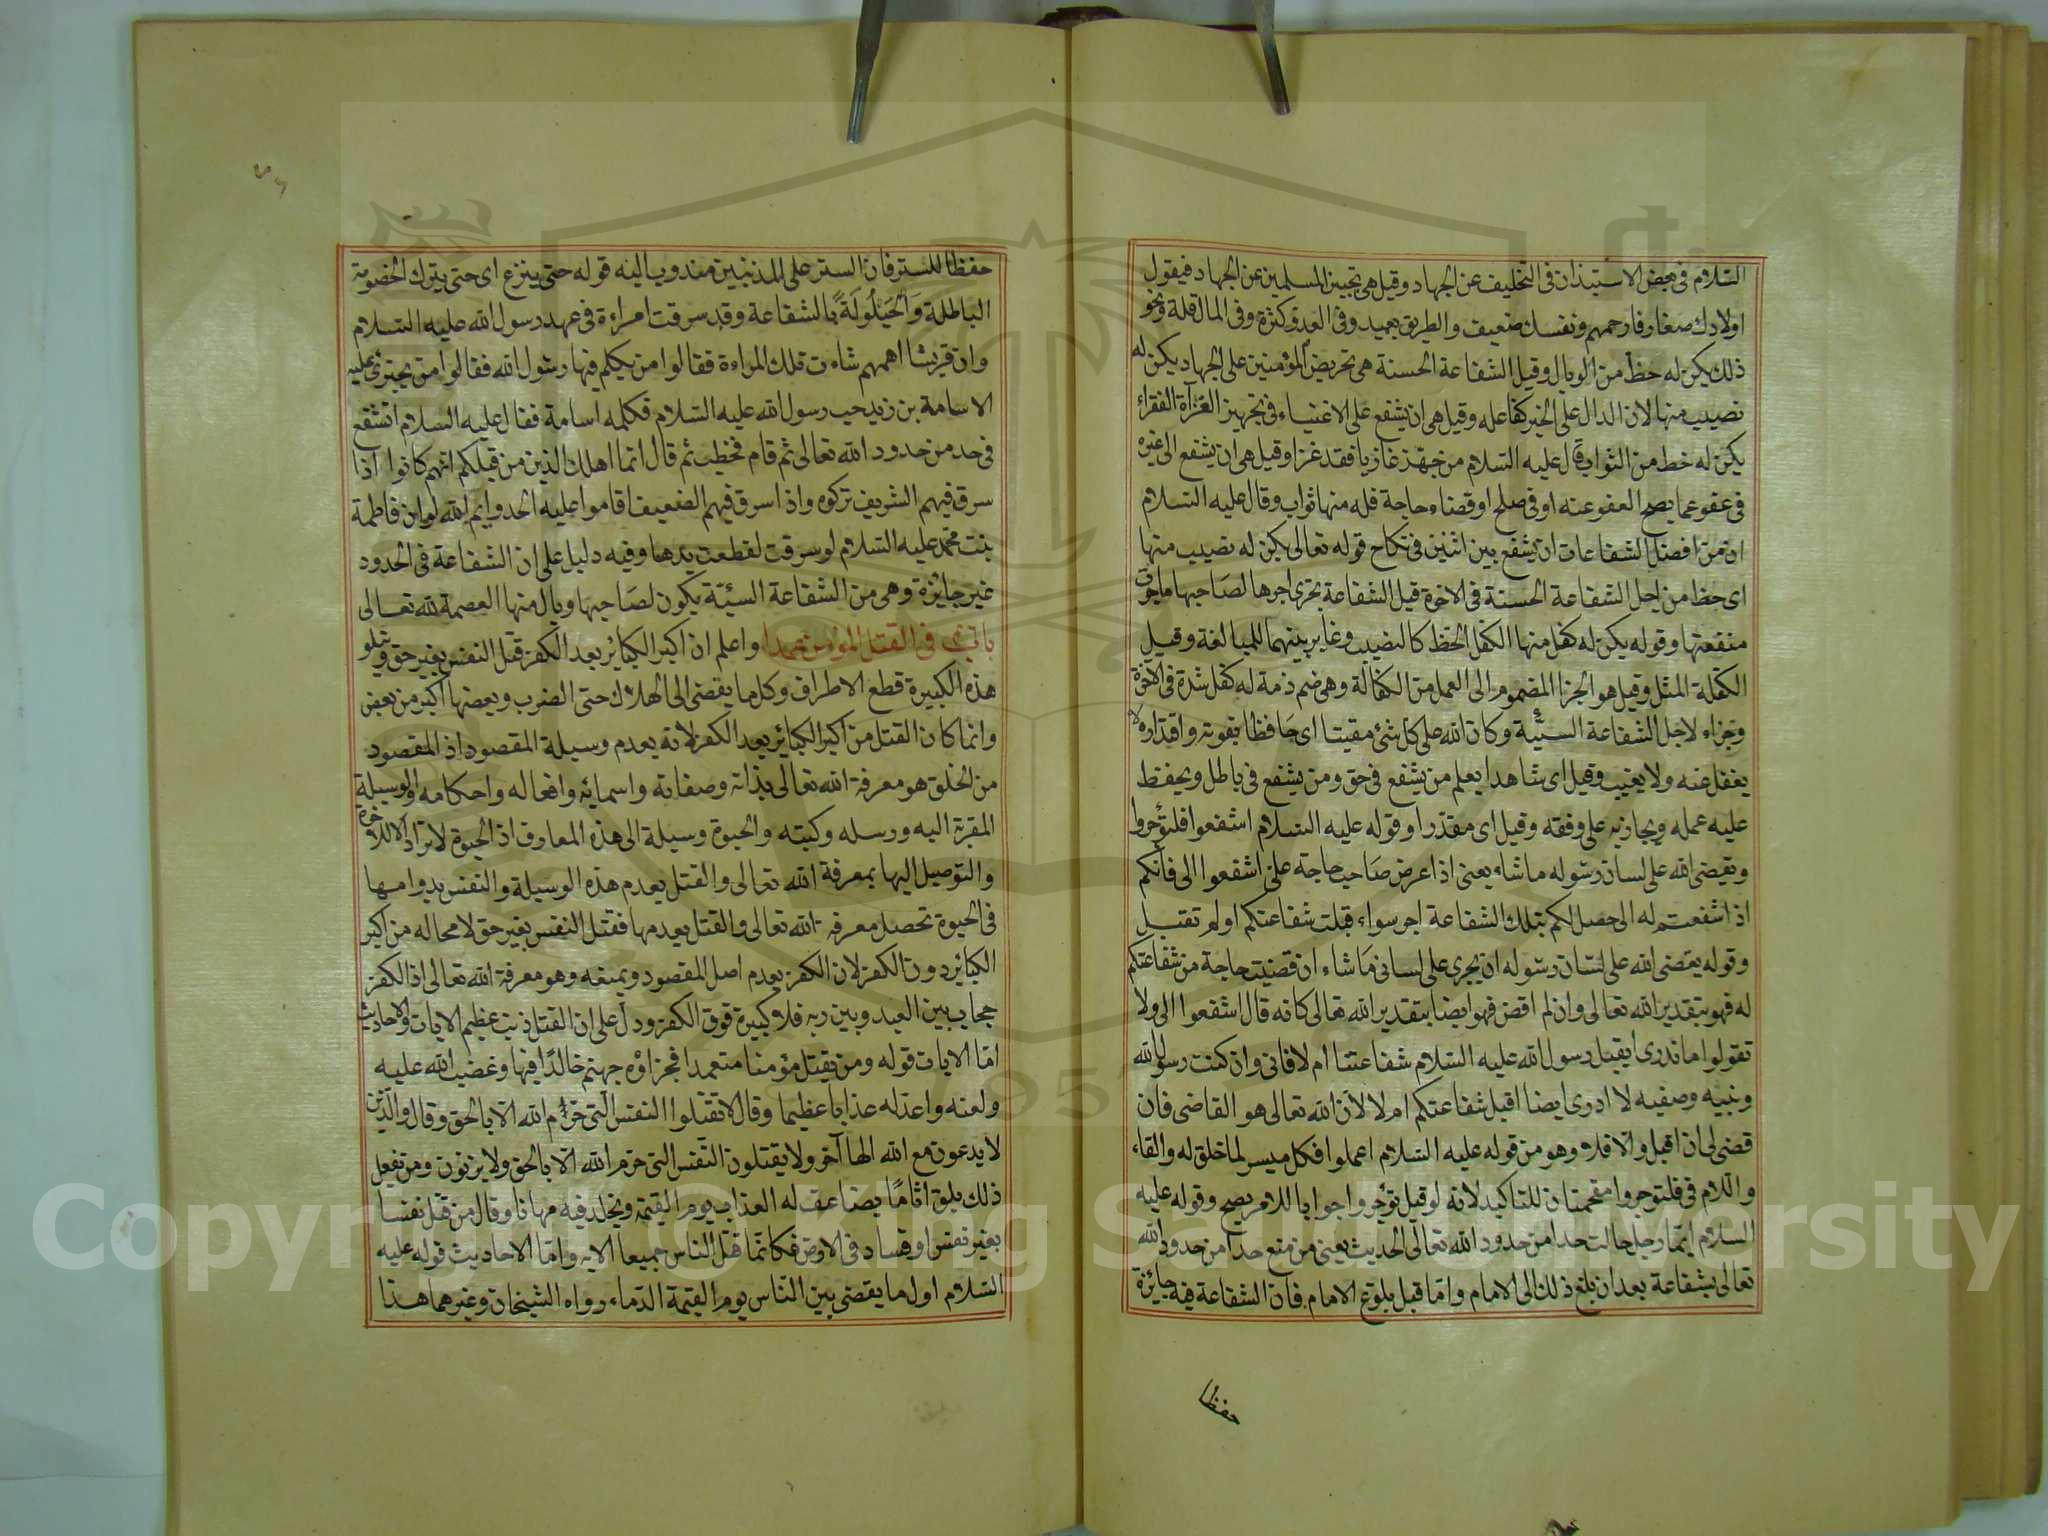 السلام في بعض الاستيذان في التخليف عن الجهاد وقيل هي تجبين المسلمين عن الجهاد فيقول
اولادك صغار فارحمهم ونفسك ضعيف والطريق بعيد وفي العدو كثرة وفي المال قلة ونحو
ذلك يكن له حظ من الوبال وقيل الشفاعة الحسنة هي تحريض المؤمنين على الجهاد يكن له
نصيب منها لان الدال على الخير كفاعله وقيل هي ان يشفع على الاغنياء في تجهيز الغزاة الفقراء
يكن له حظ من الثواب قال عليه السلام من جهز غازيا فقد غزا وقيل هي ان يشفع الى غيره
في عفو عما يصح العفو عنه او في صلح او قضاء حاجة فله منها ثواب وقال عليه السلام
ان من افضل الشفاعات ان يشفع بين اثنين في نكاح قوله تعالى يكن له نصيب منها
اى حظ من اجل الشفاعة الحسنة في الاخرة قيل الشفاعة يجرى اجرها لصاحبها ما جرت
منفعتها وقوله يكن له كفل منها الكفل الحظ كالنصيب وغاير بينهما للمبالغة وقيل
الكفلة المثل وقيل هو الجزا المضموم الى العمل من الكفالة وهي ضم ذمة له كفل شدة في الآخرة
وجزاء لاجل الشفاعة السيئة وكان الله على كل شئ مقيتا اى حافظا بقوته واقتداره لا
يغفل عنه ولا يغيب وقيل اى شاهدا يعلم من يشفع في حق ومن يشفع في باطل ويحفظ
عليه عمله ويجازيه على وفقه وقيل اى مقدرا وقوله عليه السلام اشفعوا فلتؤجروا
ويقضى الله على لسان رسوله ما شاء يعنى اذا عرض صاحب حاجة على اشفعوا الى فانكم
اذا شفعتم له الى حصل لكم بتلك الشفاعة اجر سواء قبلت شفاعتكم او لم تقبل
وقوله يقضى الله على لسان رسوله ان يجرى على لسانى ما شاء ان قضيت حاجة من شفاعتكم
له فهو بتقدير الله تعالى وان لم اقض فهو ايضا بتقدير الله تعالى كانه قال اشفعوا الى ولا
تقولوا ما ندرى أيقبل رسول الله عليه السلام شفاعتنا ام لا فانى وان كنت رسول الله
ونبيه وصفيه لا ادرى ايضا اقبل شفاعتكم ام لا لان الله تعالى هو القاضى فان
قضى لى ان اقبل والا فلا وهو من قوله عليه السلام اعملوا فكل ميسر لما خلق له والفاء
واللام في فلتوجروا مقحمتان للتاكيد لانه لو قيل تؤجروا جوابا للامر يصح وقوله عليه
السلام ايما رجل حالت حدا من حدود الله تعالى الحديث يعنى من منع حدا من حدود الله
تعالى بشفاعة بعد ان بلغ ذلك الى الامام واما قبل بلوغ الامام فان الشفاعة فيه جايزة
حفظا
حفظا للستر فان الستر على المذنبين مندوب اليه قوله حتى ينزع اى حتى يترك الخصومة
الباطلة والحيلولة بالشفاعة وقد سرقت امراءة في عهد رسول الله عليه السلام
وان قريشا اهمهم شاءن تلك المراءة فقالوا من يكلم فيها رسول الله فقالوا من يجترى عليه
الا سامة بن زيد حب رسول الله عليه السلام فكلمه اسامة فقال عليه السلام اتشفع
في حد من حدود الله تعالى ثم قام فخطب ثم قال انما اهلك الذين من قبلكم انهم كانوا اذا
سرق فيهم الشريف تركوه واذا سرق فيهم الضعيف اقاموا عليه الحد وايم الله لو ان فاطمة
بنت محمد عليه السلام لو سرقت لقطعت يدها وفيه دليل على ان الشفاعة في الحدود
غير جايزة وهي من الشفاعة السيئة يكون لصاحبها وبال منها العصمة لله تعالى
في القتل المؤمن عمدا واعلم ان اكبر الكبائر بعد الكفر قتل النفس بغير حق ويتلو
هذه الكبيرة قطع الاطراف وكل ما يفضى الى الهلاك حتى الضرب وبعضها اكبر من بعض
وانما كان القتل من اكبر الكبائر بعد الكفر لانه يعدم وسيلة المقصود اذ المقصود
من الخلق هو معرفة الله تعالى بذاته وصفاته واسمائه وافعاله واحكامه والوسيلة
المقربة اليه ورسله وكتبه والحيوة وسيلة الى هذه المعارف اذ الحيوة لا تراد الا للاخرة
والتوصيل اليها بمعرفة الله تعالى والقتل يعدم هذه الوسيلة والنفس بدوامها
في الحيوة تحصل معرفة الله تعالى والقتل يعدمها فقتل النفس بغير حق لا محاله من اكبر
الكبائر دون الكفر لان الكفر يعدم اصل المقصود ويمنعه وهو معرفة الله تعالى اذ الكفر
حجاب بين العبد وبين ربه فلا كبيرة فوق الكفر ودل على ان القتل ذنب عظيم الايات والاحاديث
اما الايات قوله ومن يقتل مؤمنا متعمدا فجزاؤه جهنم خالدا فيها وغضب الله عليه
ولعنه واعد له عذابا عظيما وقال لا تقتلوا النفس التى حرم الله الا بالحق وقال والذين
لا يدعون مع الله الها آخر ولا يقتلون النفس التى حرم الله الا بالحق ولا يزنون ومن يفعل
ذلك يلق اثاما يضاعف له العذاب يوم القيمة ويخلد فيه مهانا وقال من قتل نفسا
بغير نفس او فساد في الارض فكانما قتل الناس جميعا الاية واما الاحاديث قوله عليه
السلام اول ما يقضى بين الناس يوم القيمة الدماء رواه الشيخان وغيرهما هذا
Copyright © King Saud University